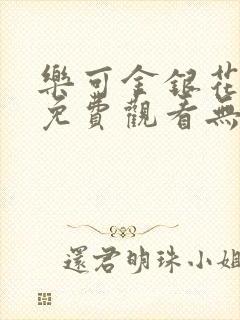 樂可金銀花
免費觀看無
還君明珠小姐